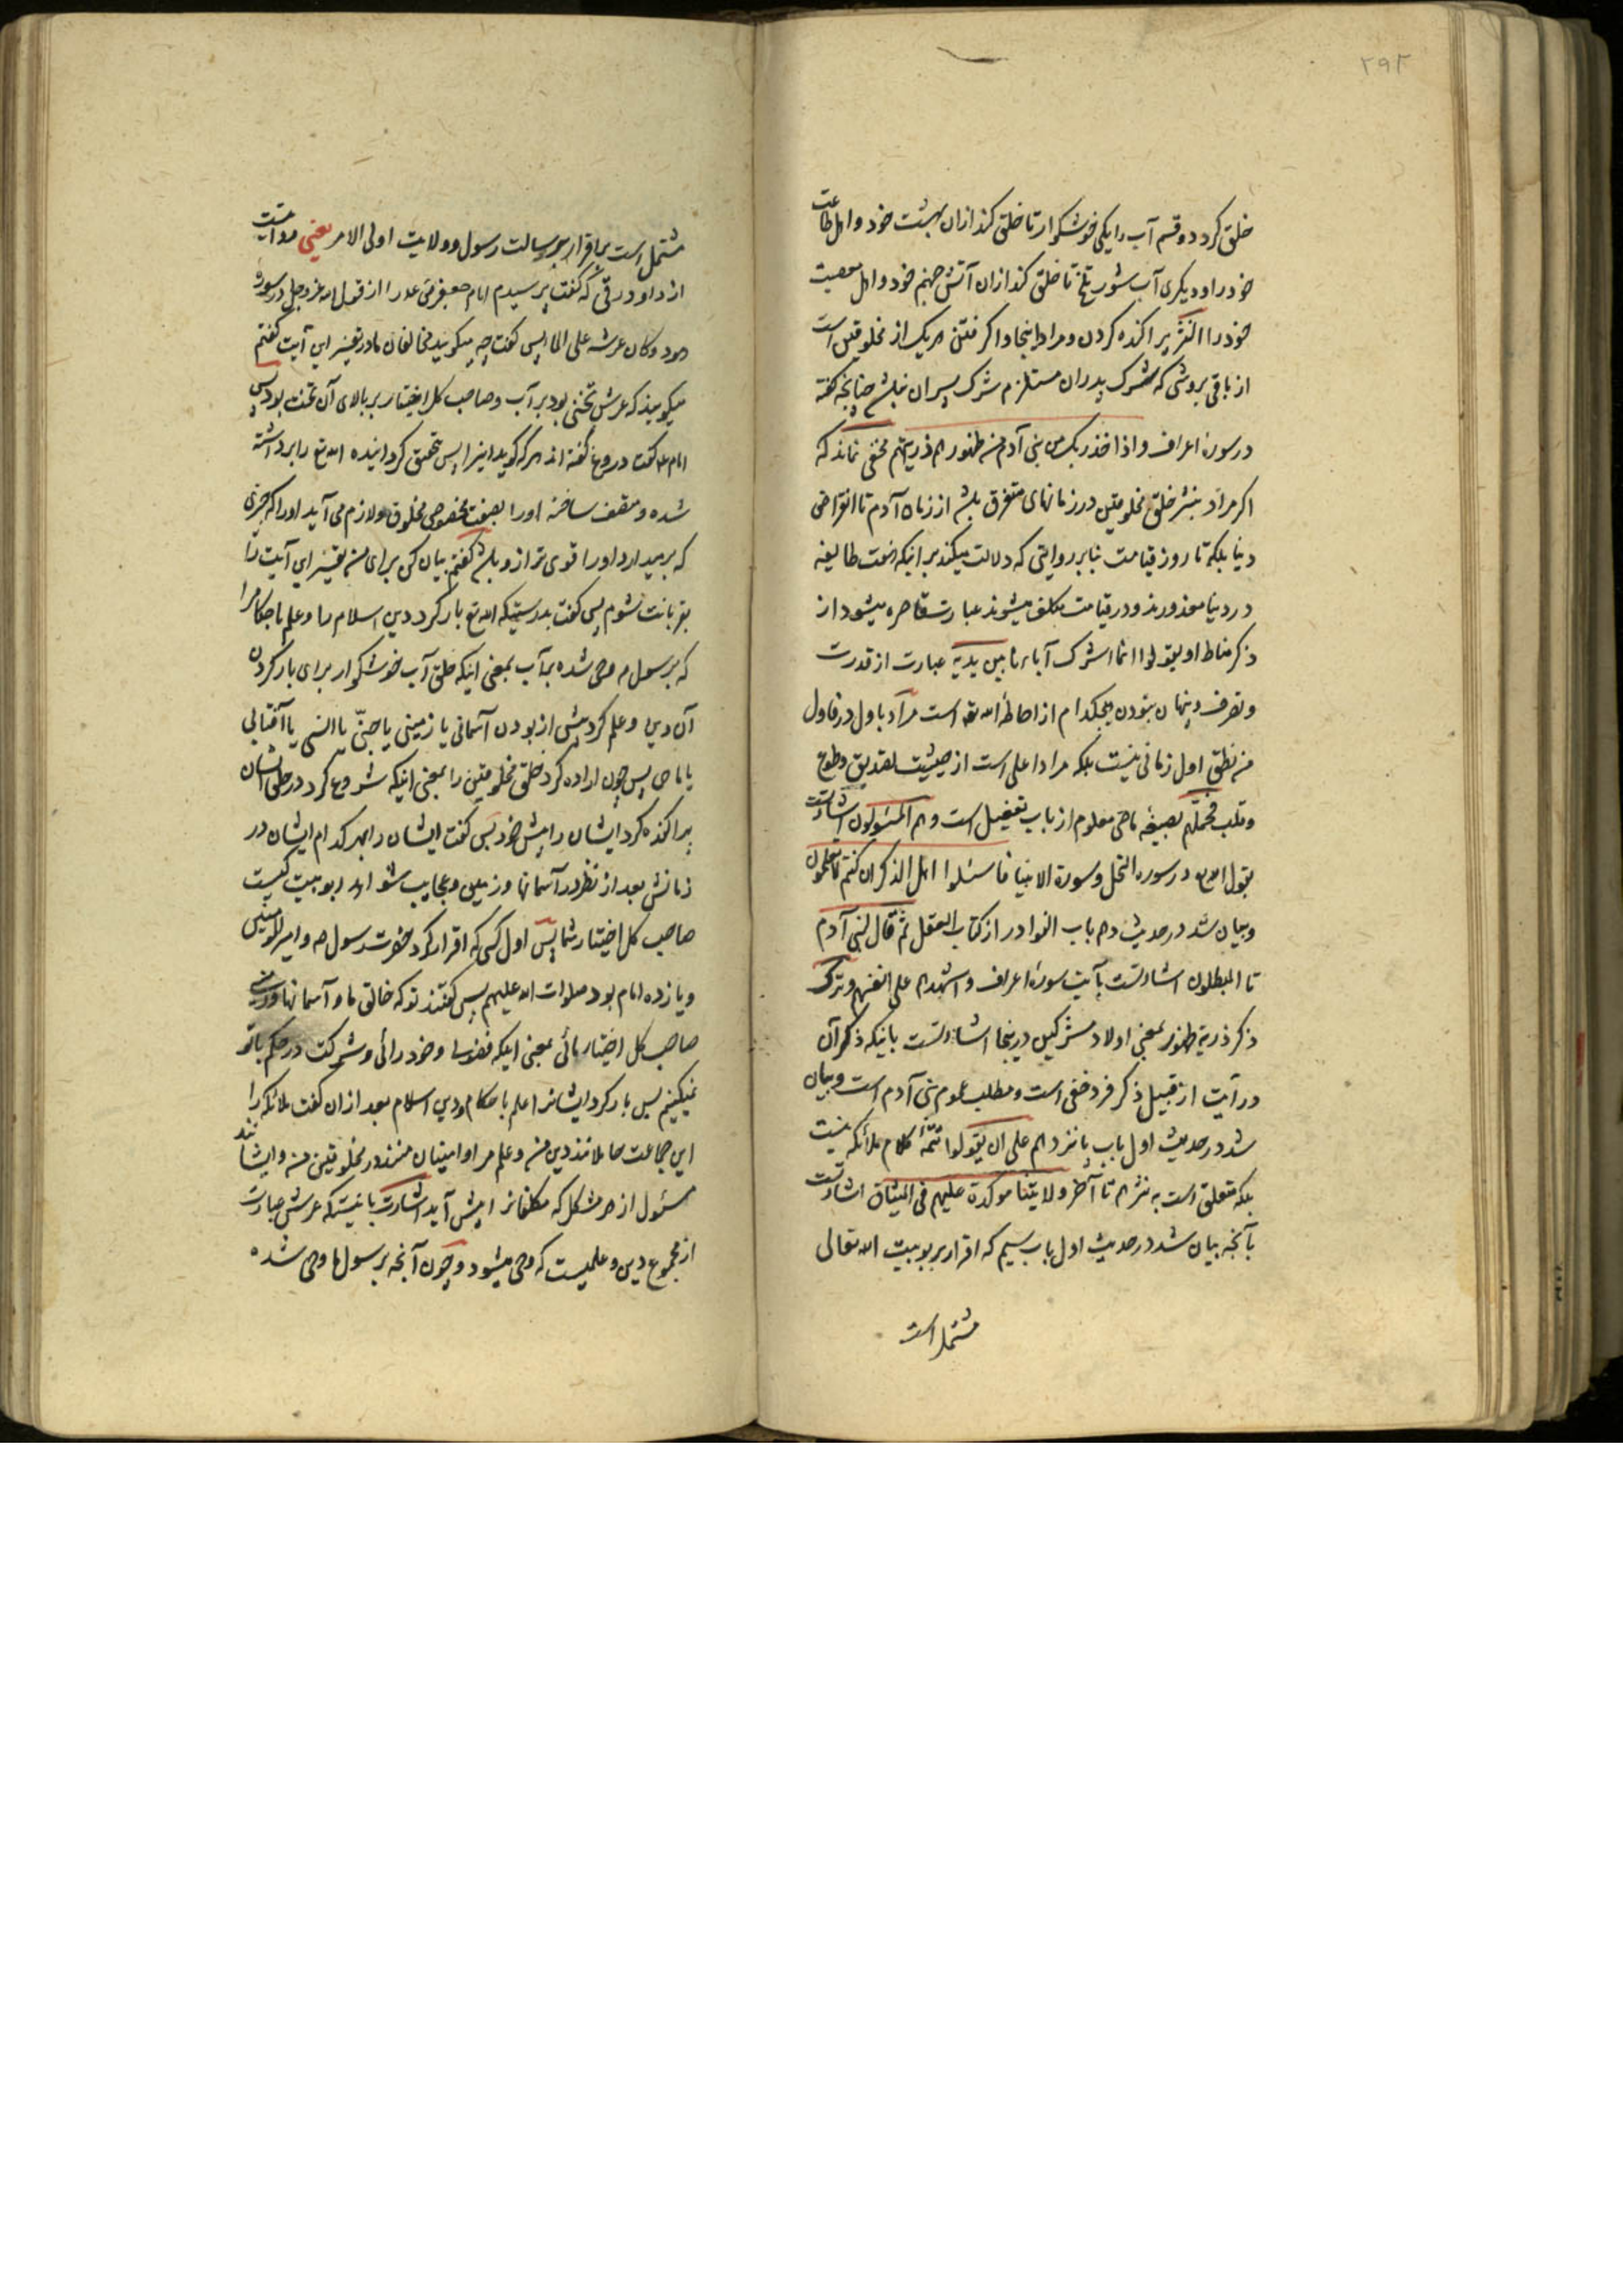 ۲۹۲
خلق کرد دو قسم آب را یکی خوشگوار تا خلق کند ازان بهشت خود و اهل طاعت
خود را و دیگری آب شور تلخ تا خلق کند ازان آتش جهنم خود و اهل معصیت
خود را النثر پراکنده کردن و مراد اینجا واگرفتن هر یک از مخلوقین است
از باقی بروشی که شرک پدران مستلزم شرک پسران نباشد چنانچه گفته
در سوره اعراف و اذ اخذ ربک من بنی آدم من ظهورهم ذریتهم مخفی نماند که
اگر مراد بنثر خلق مخلوقین در زمانهای متفرق باشد از زمان آدم تا انقراض
دنیا بلکه تا روز قیامت بنابر روایتی که دلالت میکند بر اینکه طایفه
در دنیا معذورند و در قیامت مکلف میشوند عبارت قاصره میشود از
ذکر مناط او یقولوا انما اشرک آباءنا بین یدیه عبارت از قدرت
و تصرف و پنهان نبودن هیچکدام از احاطهٔ الله تعه است مراد باول در فاول
من نطق اول زمانی نیست بلکه مراد اعلی است از حیثیت تصدیق و طوع
و قلب فحملهم بصیغه ماضی معلوم از باب تفعیل است و هم المسئولون اشارتست
بقول الله در سوره النحل و سورة الانبیا فاسئلوا اهل الذکر ان کنتم لا تعلمون
و بیان شد در حدیث دهم باب النوادر از کتاب العقل ثم قال لبنی آدم
تا المبطلون اشارتست بآیت سورهٔ اعراف و اشهدهم علی انفسهم و ترک
ذکر ذریة ظهور بمعنی اولاد مشرکین درینجا اشارتست باینکه ذکر آن
در آیت از قبیل ذکر فرد خفی است و مطلب عموم بنی آدم است و بیان
شد در حدیث اول باب پانزدهم علی ان یقولوا تتمهٔ کلام ملائکه نیست
بلکه متعلق است به نثرهم تا آخر ولایتنا موکدة علیهم فی المیثاق اشارتست
بآنچه بیان شد در حدیث اول باب سیم که اقرار بربوبیت الله تعالی
مشتمل است
مشتمل است بر اقرار برسالت رسول و ولایت اولی الامر یعنی روایت
از داود رقی که گفت پرسیدم امام جعفر صادق را از قول الله عز و جل در سوره
هود و کان عرشه علی الماء پس گفت چه میگویند مخالفان ما در تفسیر این آیت گفتم
میگویند که عرش تختی بود بر آب و صاحب کل اختیار بر بالای آن تخت بود پس
امام ع گفت دروغ گفته اند هر که گوید اینرا پس بتحقیق گردانیده الله تع را برداشته
شده و متصف ساخته او را بصفت مخصوص مخلوق و لازم می آید او را که چیزی
که بر میدارد او را قوی تر ازو باشد گفتم بیان کن برای من تفسیر این آیت را
بقربانت شوم پس گفت بدرستیکه الله تع بار کرد دین اسلام را و علم باحکام را
که برسول م وحی شده بآب بمعنی اینکه خلق آب خوشگوار برای بار کردن
آن دین و علم کرد پیش از بودن آسمانی یا زمینی یا جنّی یا انسی یا آفتابی
یا ماهی پس چون اراده کرد خلق مخلوقین را بمعنی اینکه شروع کرد در خلق ایشان
پراکنده کرد ایشان را پیش خود پس گفت ایشان را بهر کدام ایشان در
زمانش بعد از نظر در آسمانها و زمین و عجایب شواهد ربوبیت کیست
صاحب کل اختیار شما پس اول کسی که اقرار کرد حضرت رسول ص و امیر المومنین
و یازده امام بود صلوات الله علیهم پس گفتند تو که خالق ما و آسمانها و زمینی
صاحب کل اختیار مائی بمعنی اینکه و خود رائی و شرکت در حکم با تو
نمیکنیم پس بار کرد ایشانرا علم باحکام و دین اسلام بعد ازان گفت ملائکه را
این جماعت حاملانند دین من و علم مرا و امینان منند در مخلوقین من و ایشانند
مسئول از هر مشکل که مکلفانرا پیش آید اشارت باینست که عرش عبارت
از مجموع دین و علمیست که وحی میشود و چون آنچه برسولها وحی شده